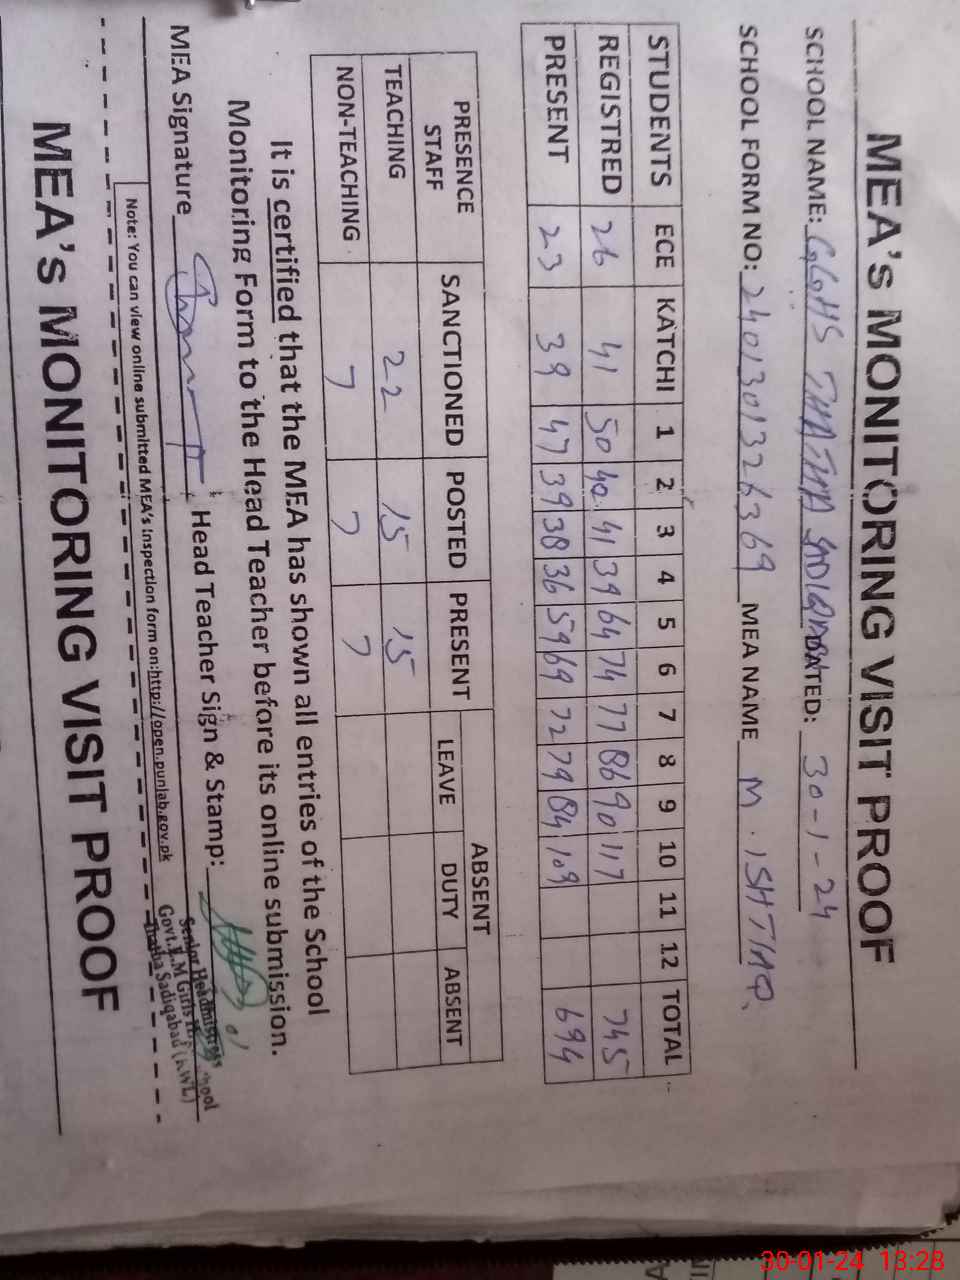 MEA's MONITORING VISIT PROOF
SCHOOL NAME: GGHS THATHA SADIQABAD DATED: 30-1-24
SCHOOL FORM NO: 2401301326369 MEA NAME M. ISHTIAQ
STUDENTS ECE KATCHI 1 2 3 4 5 6 7 8 9 10 11 12 TOTAL
REGISTRED 26 41 50 40 41 39 64 74 77 86 90 117 745
PRESENT 23 39 47 39 38 36 59 69 72 79 84 109 694
PRESENCE STAFF SANCTIONED POSTED PRESENT ABSENT
LEAVE DUTY ABSENT
TEACHING 22 15 15
NON-TEACHING 7 7 7
It is certified that the MEA has shown all entries of the School
Monitoring Form to the Head Teacher before its online submission.
MEA Signature Head Teacher Sign & Stamp:
Senior Headmistress
Govt. E.M Girls H. School
Thatha Sadiqabad (KWL)
Note: You can view online submitted MEA's Inspection form on:http://open.punjab.gov.pk
MEA's MONITORING VISIT PROOF
30-01-24 13:28